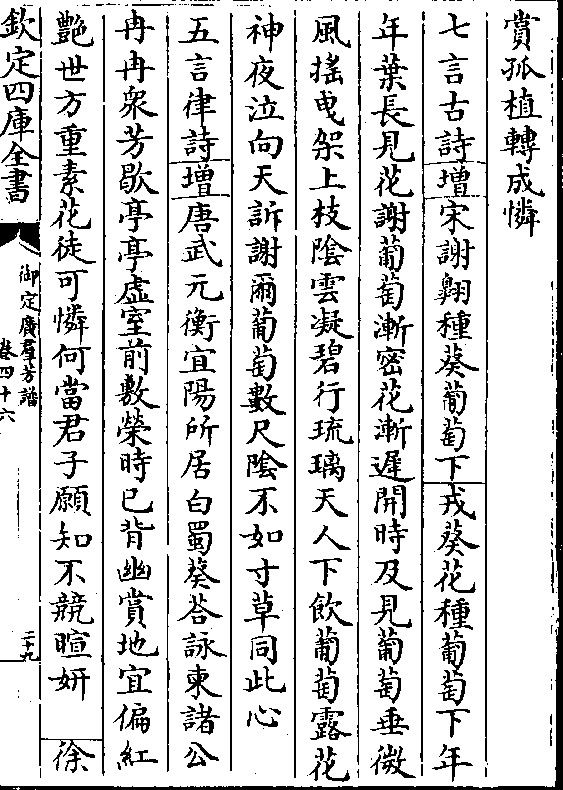 賞孤植轉成憐
七言古詩增宋謝翺種葵葡萄下戎葵花種葡萄下年
年葉長見花謝葡萄漸密花漸遲開時及見葡萄垂微
風搖曳架上枝陰雲凝碧行琉璃天人下飲葡萄露花
神夜泣向天訴謝爾葡萄數尺陰不如寸草同此心
五言律詩增唐武元衡宜陽所居白蜀葵荅詠柬諸公
冉冉衆芳歇亭亭虛室前敷榮時已背幽賞地宜偏紅
艷世方重素花徒可憐何當君子願知不競暄妍 徐
欽定四庫全書
御定廣羣芳譜
卷四十六
二十九